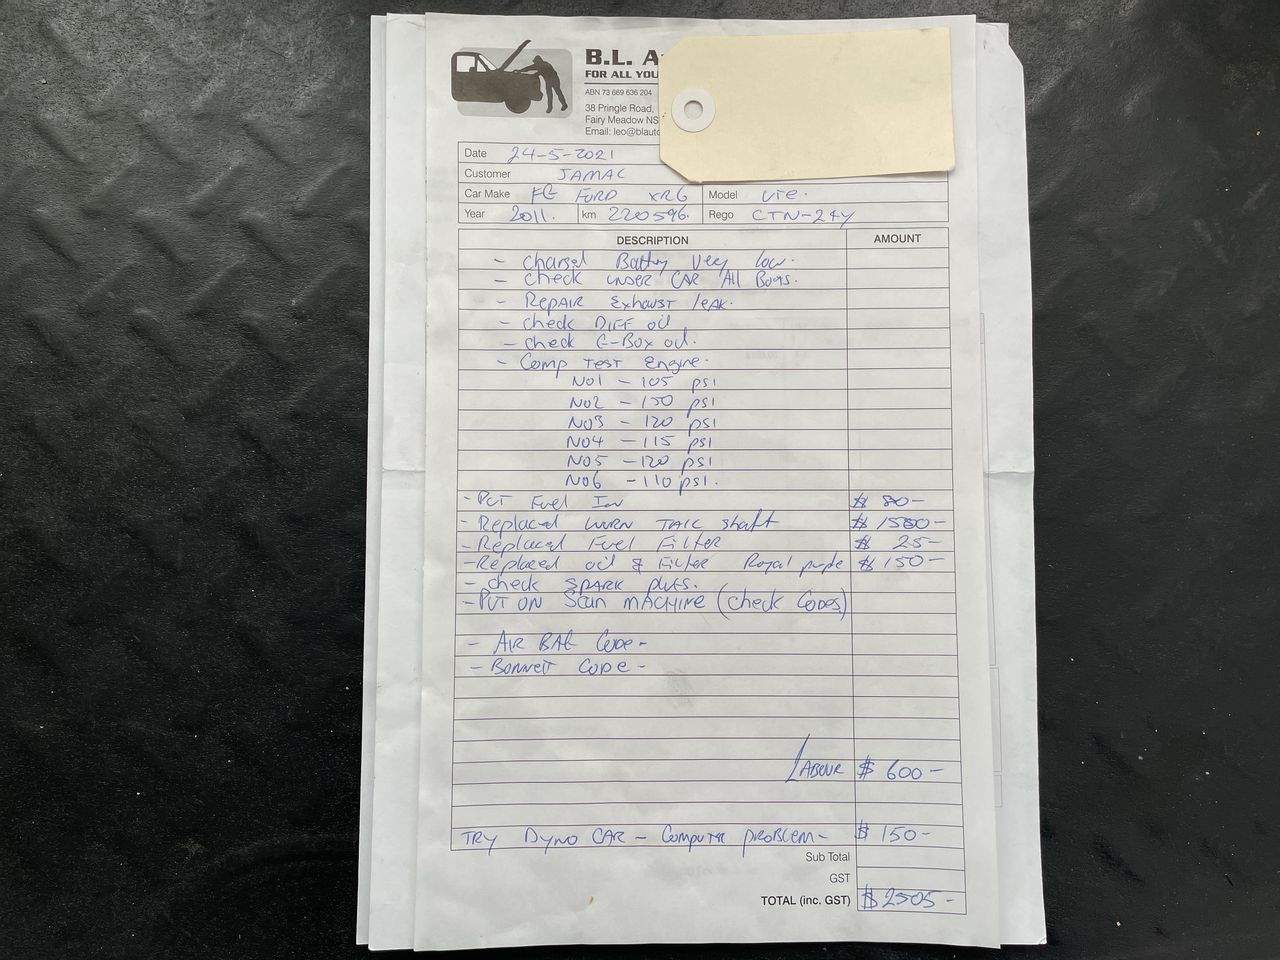 B.L. A
FOR ALL YOU
ABN 73 669 636 204
38 Pringle Road,
Fairy Meadow NS
Email: leo@blauto
Date 24-5-2021
Customer JAMAC
Car Make FG FORD XR6 Model UTE.
Year 2011. km 220596. Rego CTN-24Y
DESCRIPTION AMOUNT
- Charged Battery Very low.
- Check UNDER CAR All Boots.
- REPAIR Exhaust leak.
- check DIFF oil
- check G-Box oil.
- Comp TEST Engine.
NO1 - 105 psi
NO2 - 130 psi
NO3 - 120 psi
NO4 - 115 psi
NO5 - 120 psi
NO6 - 110 psi.
- PUT Fuel In $ 80-
- Replaced WORN TAIL shaft $ 1500-
- Replaced Fuel Filter $ 25-
- Replaced oil & Filter Royal purple $ 150-
- check SPARK plugs.
- PUT ON Scan MACHINE (Check Codes)
- AIR BAG Code-
- BONNETT CODE-
LABOUR $ 600-
TRY DYNO CAR - Computer problem- $ 150-
Sub Total
GST
TOTAL (inc. GST) $ 2505-